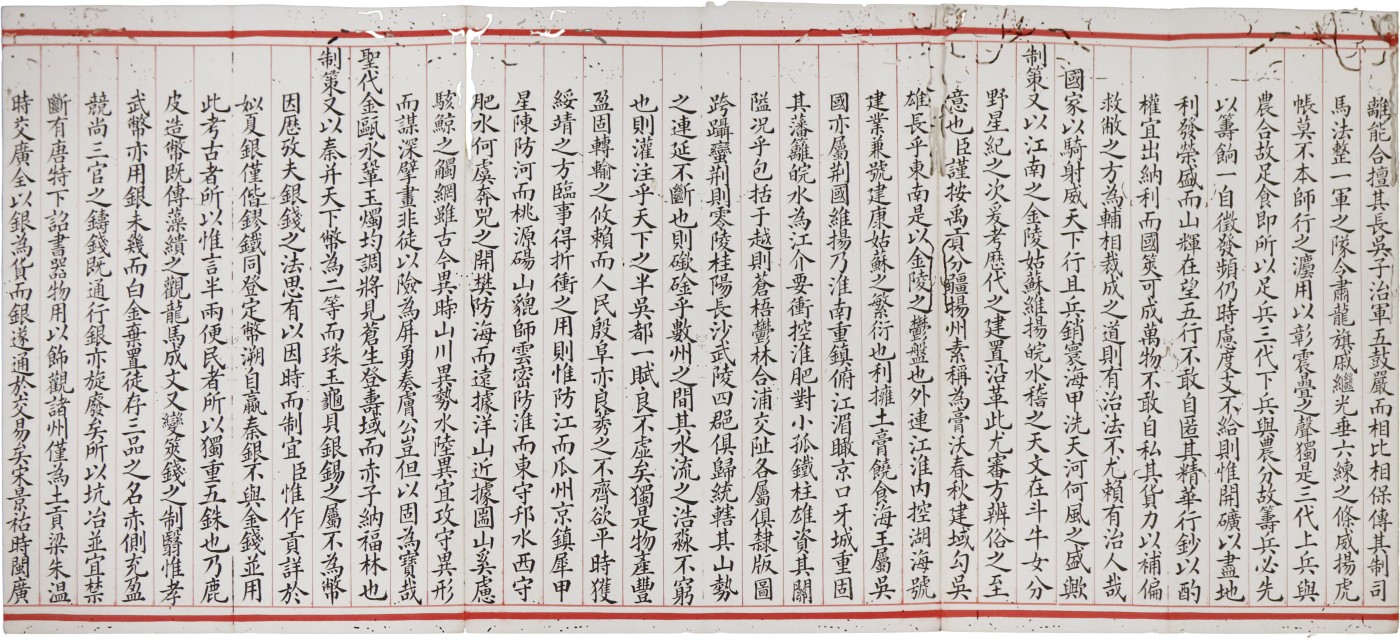 離能合擅其長吳子治軍五鼓嚴而相比相保傳其制司
馬法整一軍之隊令肅龍旗戚繼光垂六練之條威揚虎
帳莫不本師行之灋用以彰震疊之聲獨是三代上兵與
農合故足食即所以足兵三代下兵與農分故籌兵必先
以籌餉一自徵發頻仍時慮度支不給則惟開礦以盡地
利發榮盛而山輝在望五行不敢自匿其精華行鈔以酌
權宜出納利而國筴可成萬物不敢自私其貨力以補偏
救敝之方為輔相裁成之道則有治法不尤賴有治人哉
國家以騎射威天下行且兵銷寰海甲洗天河何風之盛歟
制策又以江南之金陵姑蘇維揚皖水稽之天文在斗牛女分
野星紀之次爰考歷代之建置沿革此尤審方辨俗之至
意也臣謹按禹貢分疆揚州素稱為膏沃春秋建域勾吳
雄長乎東南是以金陵之鬱盤也外連江淮內控湖海號
建業兼號建康姑蘇之繁衍也利擁土膏饒食海王屬吳
國亦屬荆國維揚乃淮南重鎮俯江湄瞰京口牙城重固
其藩籬皖水為江介要衝控淮肥對小孤鐵柱雄資其關
隘况乎包括于越則蒼梧鬱林合浦交阯各屬俱隸版圖
跨躡蠻荆則零陵桂陽長沙武陵四郡俱歸統轄其山勢
之連延不斷也則乎數州之間其水流之浩淼不窮
也則灌注乎天下之半吳都一賦良不虛矣獨是物產豐
盈固轉輸之攸賴而人民殷阜亦良莠之不齊欲平時獲
綏靖之方臨事得折衝之用則惟防江而瓜州京鎮犀甲
星陳防河而桃源碭山貔師雲密防淮而東守邗水西守
肥水何虞奔兕之開樊防海而遠據洋山近據圖山奚慮
駭鯨之觸網雖古今異時山川異勢水陸異宜攻守異形
而謀深擘畫非徒以險為屏勇奏膚公豈但以固為寶哉
聖代金甌永鞏玉燭均調將見蒼生登壽域而赤子納福林也
制策又以秦并天下幣為二等而珠玉龜貝銀錫之屬不為幣
因歷攷夫銀錢之法思有以因時而制宜臣惟作貢詳於
姒夏銀僅偕鏐鐵同登定幣溯自嬴秦銀不與金錢並用
此考古者所以惟言半兩便民者所以獨重五銖也乃鹿
皮造幣既傳藻繢之觀龍馬成文又變筴錢之制翳惟孝
武幣亦用銀未幾而白金棄置徒存三品之名赤側充盈
競尚三官之鑄錢既通行銀亦旋廢矣所以坑冶並宜禁
斷有唐特下詔書器物用以飾觀諸州僅為土貢梁朱溫
時交廣全以銀為貨而銀遂通於交易矣宋景祐時閩廣